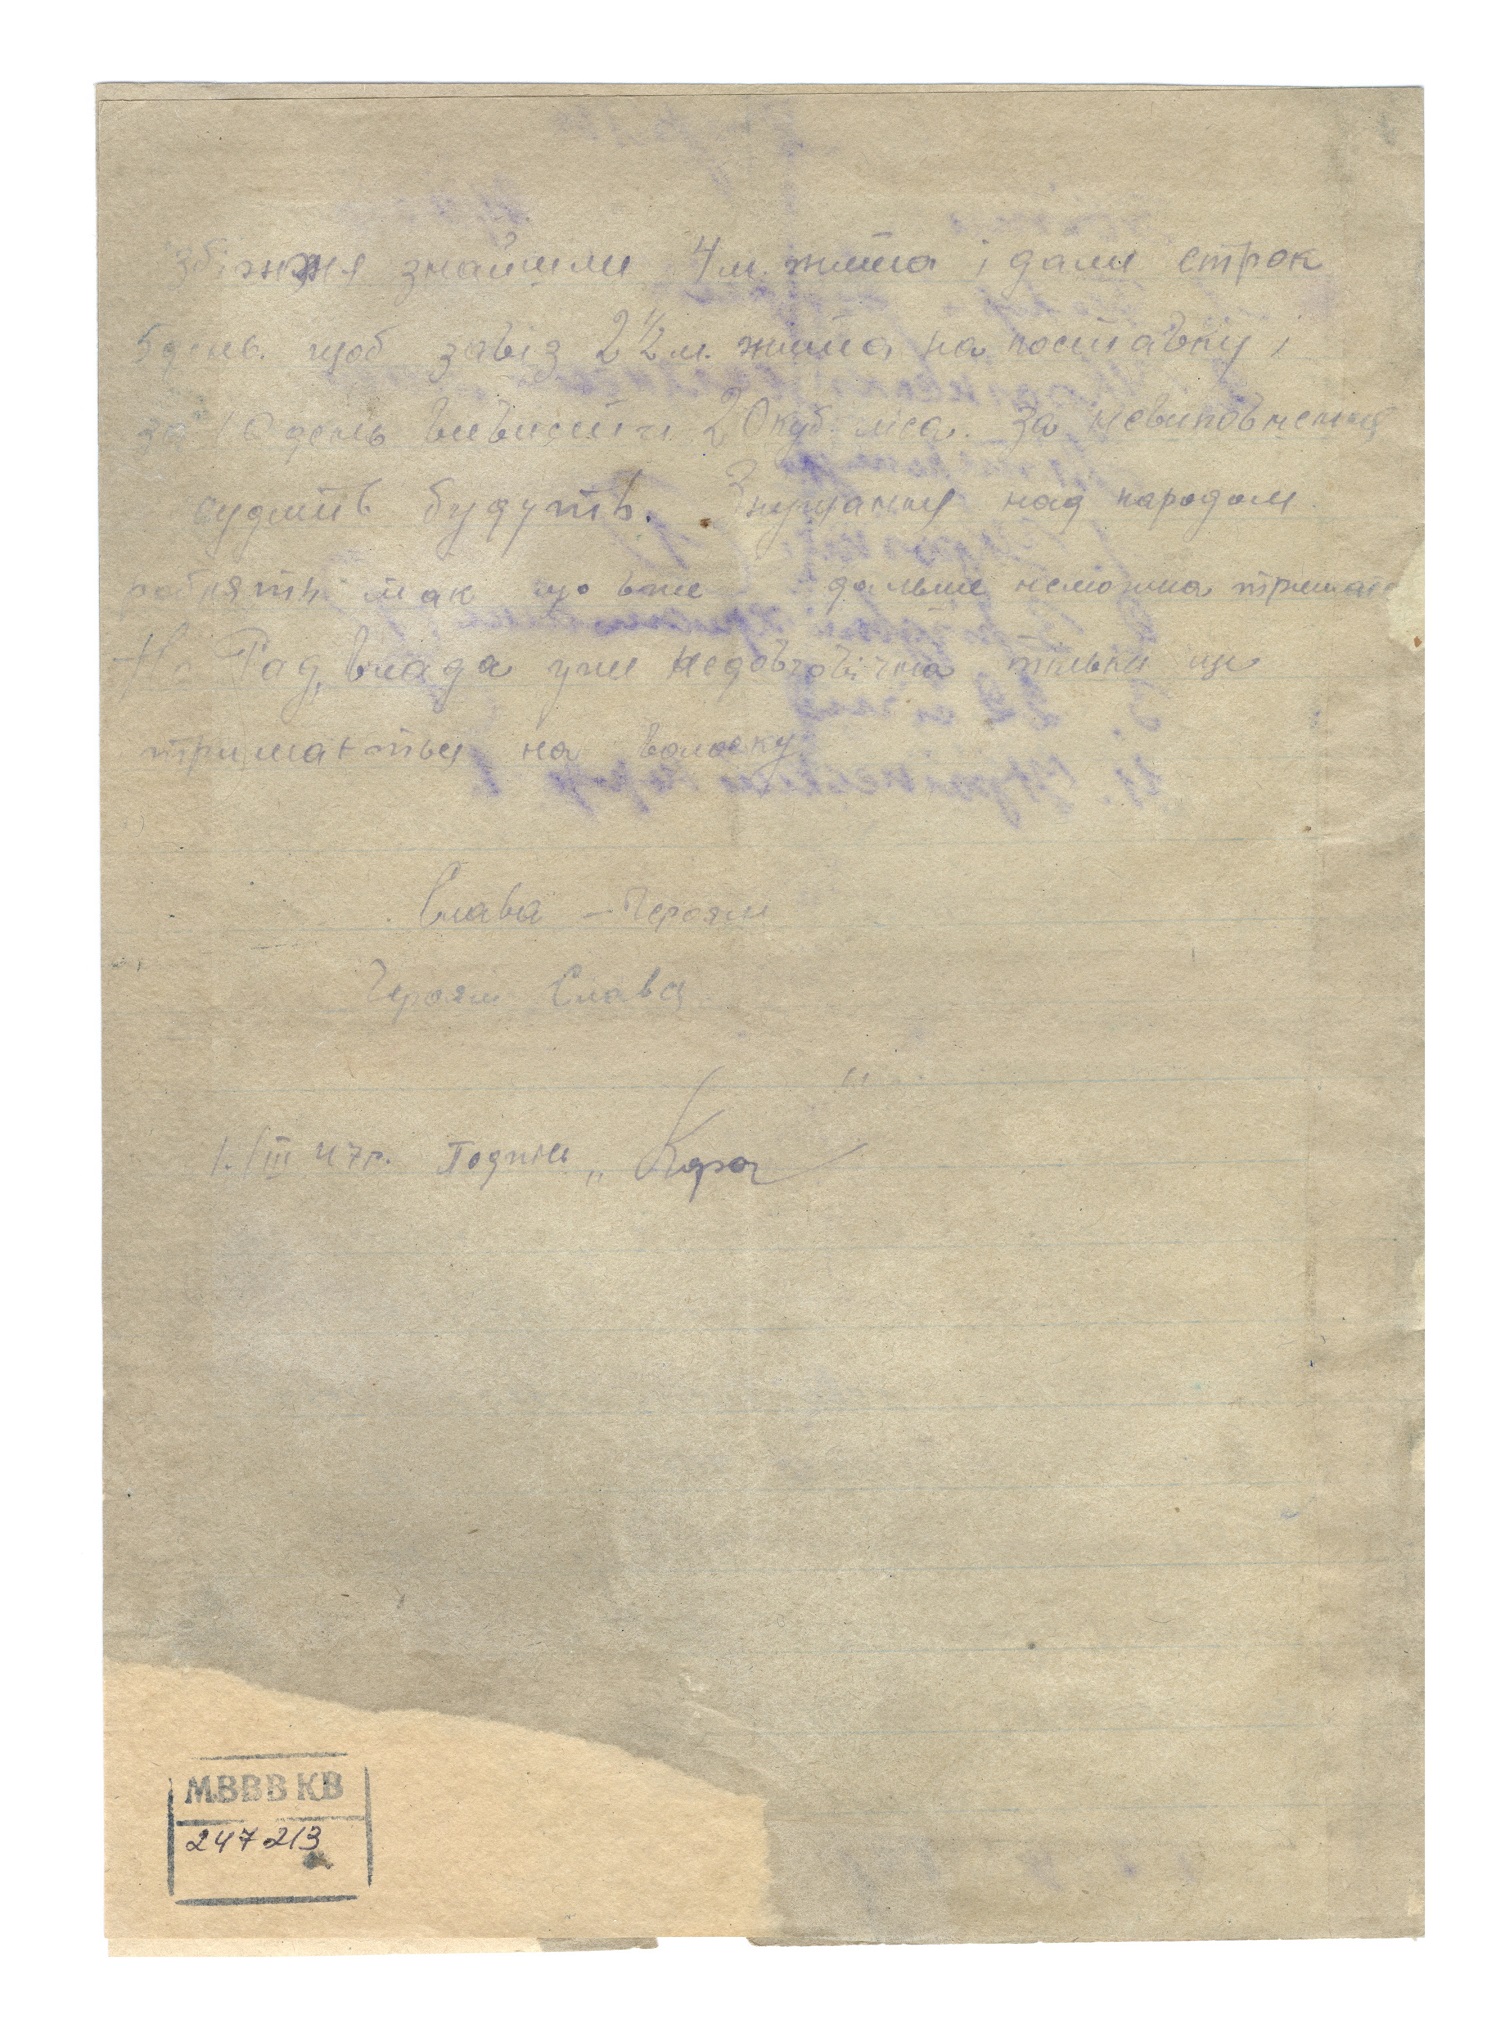 збіжжя знайшли 4 м. жита і дали строк
5 день. щоб завіз 2 1/2 м. жита на поставку і
за 10 день вивисити 20 куб. ліса. за невиповнення
судить будуть. Знущання над народом
роблять так що вже дальше неможна тримать
Но Рад, влада уже недовговічна тільки ще
тримаеться на волоску.
Слава – Героям
Героям Слава
1. III 47 г. Подпись „
МВВВ КВ
247213